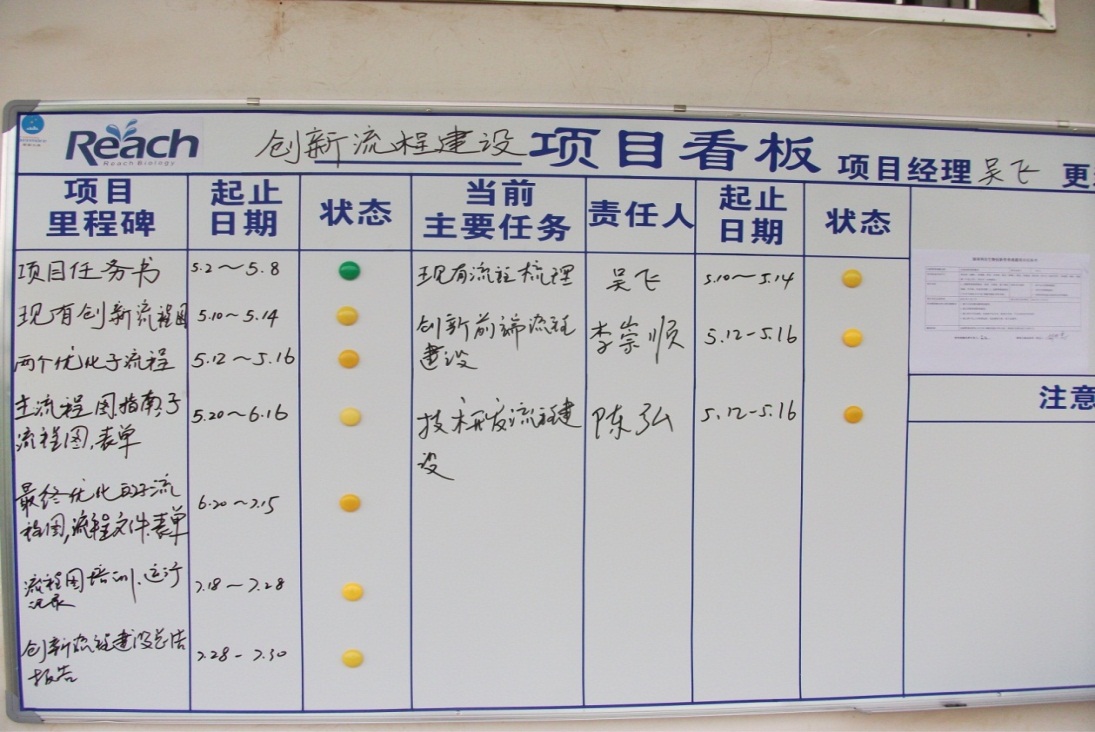 Reach
Reach Biology
创新流程建设 项目看板 项目经理 吴飞 更
项目里程碑 起止日期 状态 当前主要任务 责任人 起止日期 状态
项目任务书 5.2～5.8 现有流程梳理 吴飞 5.10～5.14
现有创新流程图 5.10～5.14
创新前端流程建设 李崇顺 5.12-5.16
两个优化子流程 5.12～5.16
主流程图指南子流程图,表单 5.20～6.16
技术研发流程建设 陈弘 5.12-5.16
最终优化的子流程图,流程文件.表单 6.20～7.15
流程图培训.运行记录 7.18～7.28
创新流程建设总结报告 7.28-7.30
注意